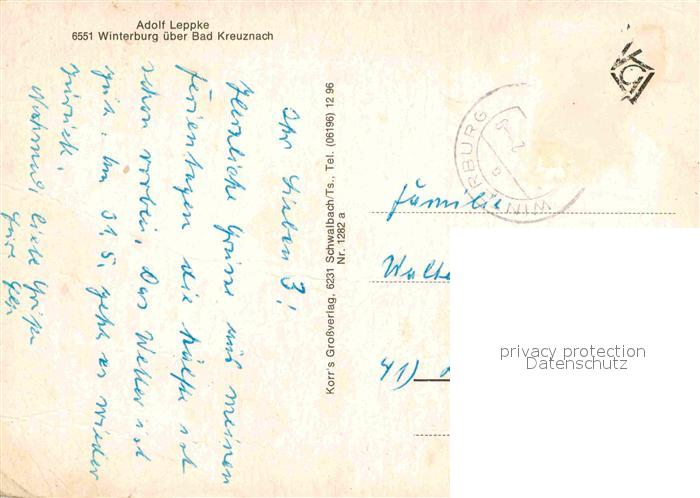 Adolf Leppke
6551 Winterburg über Bad Kreuznach
Ihr Lieben 3!
Herzliche Grüsse aus meinen
Ferientagen die Hälfte ist
schon vorbei. Das Wetter ist
gut. Am 31.5. geht es wieder
zurück.
Nochmal, liebe Grüße
Eure
Korr's Großverlag, 6231 Schwalbach/Ts., Tel. (06196) 12 96
Nr. 1282 a
WINTERBURG
Familie
Walte
41)
privacy protection
Datenschutz